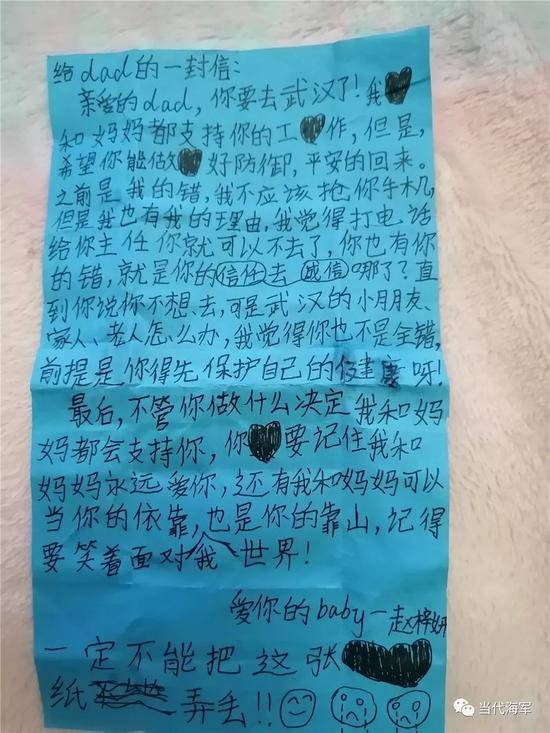 给dad的一封信:
亲爱的dad，你要去武汉了！我
和妈妈都支持你的工作，但是，
希望你能做好防御，平安的回来。
之前是我的错，我不应该抢你手机，
但是我也有我的理由，我觉得打电话
给你主任你就可以不去了，你也有你
的错，就是你的信任去诚信哪了？直
到你说你不想去，可是武汉的小朋友、
家人、老人怎么办，我觉得你也不是全错，
前提是你得先保护自己的健康呀！
最后，不管你做什么决定我和妈
妈都会支持你，你要记住我和
妈妈永远爱你，还有我和妈妈可以
当你的依靠，也是你的靠山，记得
要笑着面对我世界！
爱你的baby一赵梓妍
一定不能把这张
纸弄丢!!
当代海军